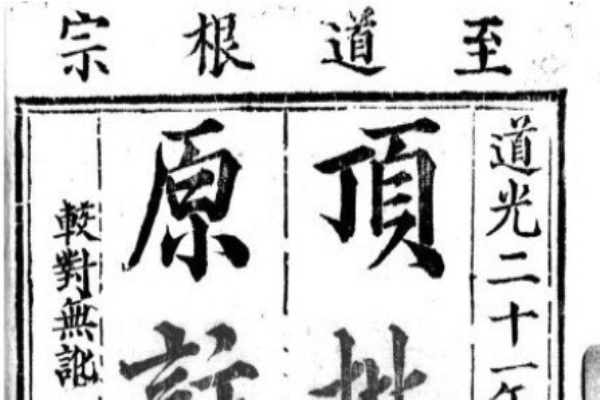 至道根宗
道光二十一年
頂批
原註
較對無訛